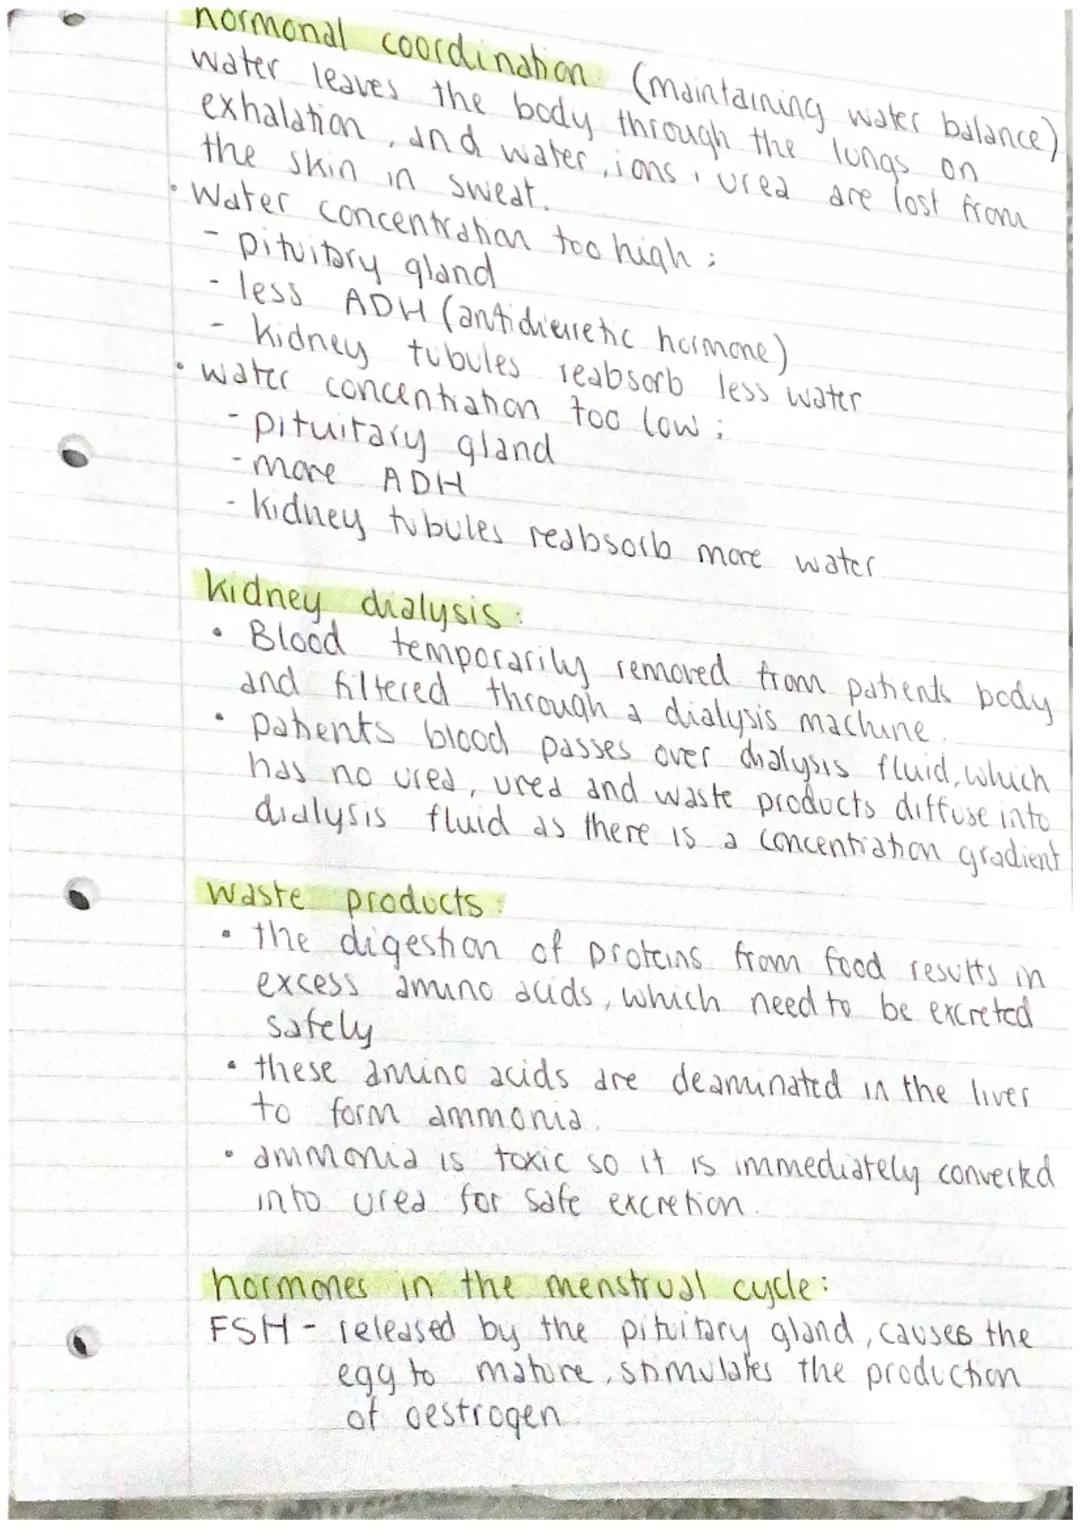 hormonal coordination: (maintaining water balance)
water leaves the body through the lungs on
exhalation, and water, ions, urea are lost from
the skin in sweat.
• Water concentration too high;
- pituitary gland
- less ADH (antidieuretic hormone)
- kidney tubules reabsorb less water
• water concentration too low;
- pituitary gland
- more ADH
- kidney tubules reabsorb more water
kidney dialysis:
• Blood temporarily removed from patients body
and filtered through a dialysis machine.
• patients blood passes over dialysis fluid, which
has no urea, urea and waste products diffuse into
dialysis fluid as there is a concentration gradient
waste products:
• the digestion of proteins from food results in
excess amino acids, which need to be excreted
safely
• these amino acids are deaminated in the liver
to form ammonia.
• ammonia is toxic so it is immediately converted
into urea for safe excretion.
hormones in the menstrual cycle:
FSH - released by the pituitary gland, causes the
egg to mature, stimulates the production
of oestrogen